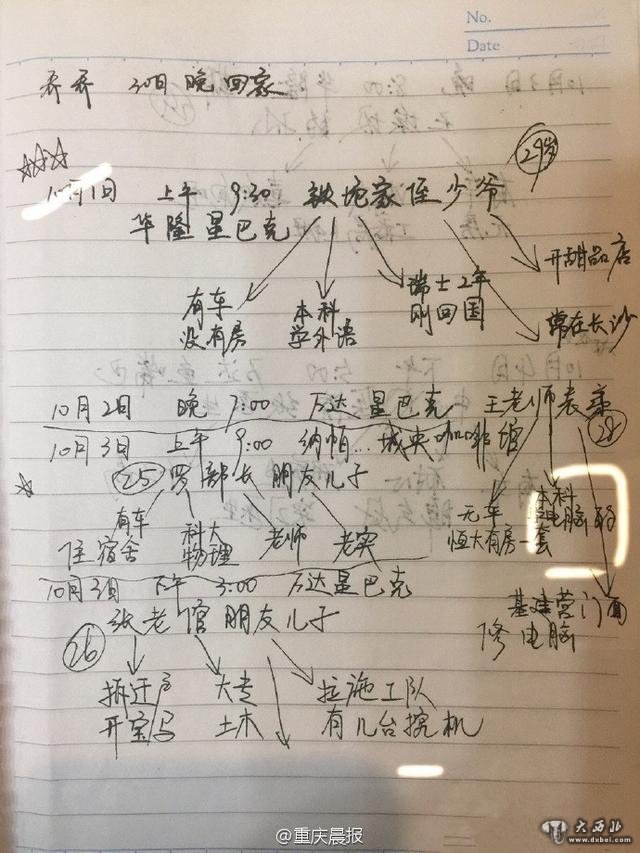 No.
Date
乔乔 30日晚回家
☆☆☆
10月1日 上午 9:30 铁坨家侄少爷 29岁
华隆星巴克
开甜品店
有车
没有房
本科
学外语
瑞士2年
刚回国
常在长沙
10月2日 晚 7:00 万达星巴克 王老师表弟 28
10月3日 上午 9:00 纳帕…城央咖啡馆
☆
25 罗部长朋友儿子
有车
住宿舍
科大
物理
老师
老实
无车
恒大有房一套
本科
学电脑的
10月3日 下午 3:00 万达星巴克
张老倌朋友儿子
26
基建营门面
修电脑
拆迁户
开宝马
大专
土木
拉施工队
有几台挖机
@重庆晨报
大西北
www.dxbei.com